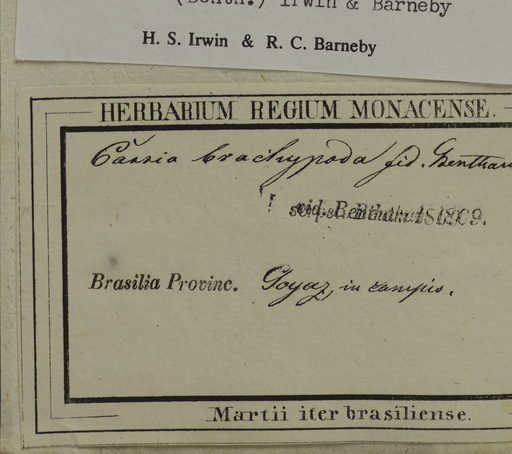 (Benth.) Irwin & Barneby
H. S. Irwin & R. C. Barneby
HERBARIUM REGIUM MONACENSE.
Cassia brachypoda fid. Bentham
vid. Benth.
Brasilia Provinc. Goyaz, in campis.
Martii iter brasiliense.